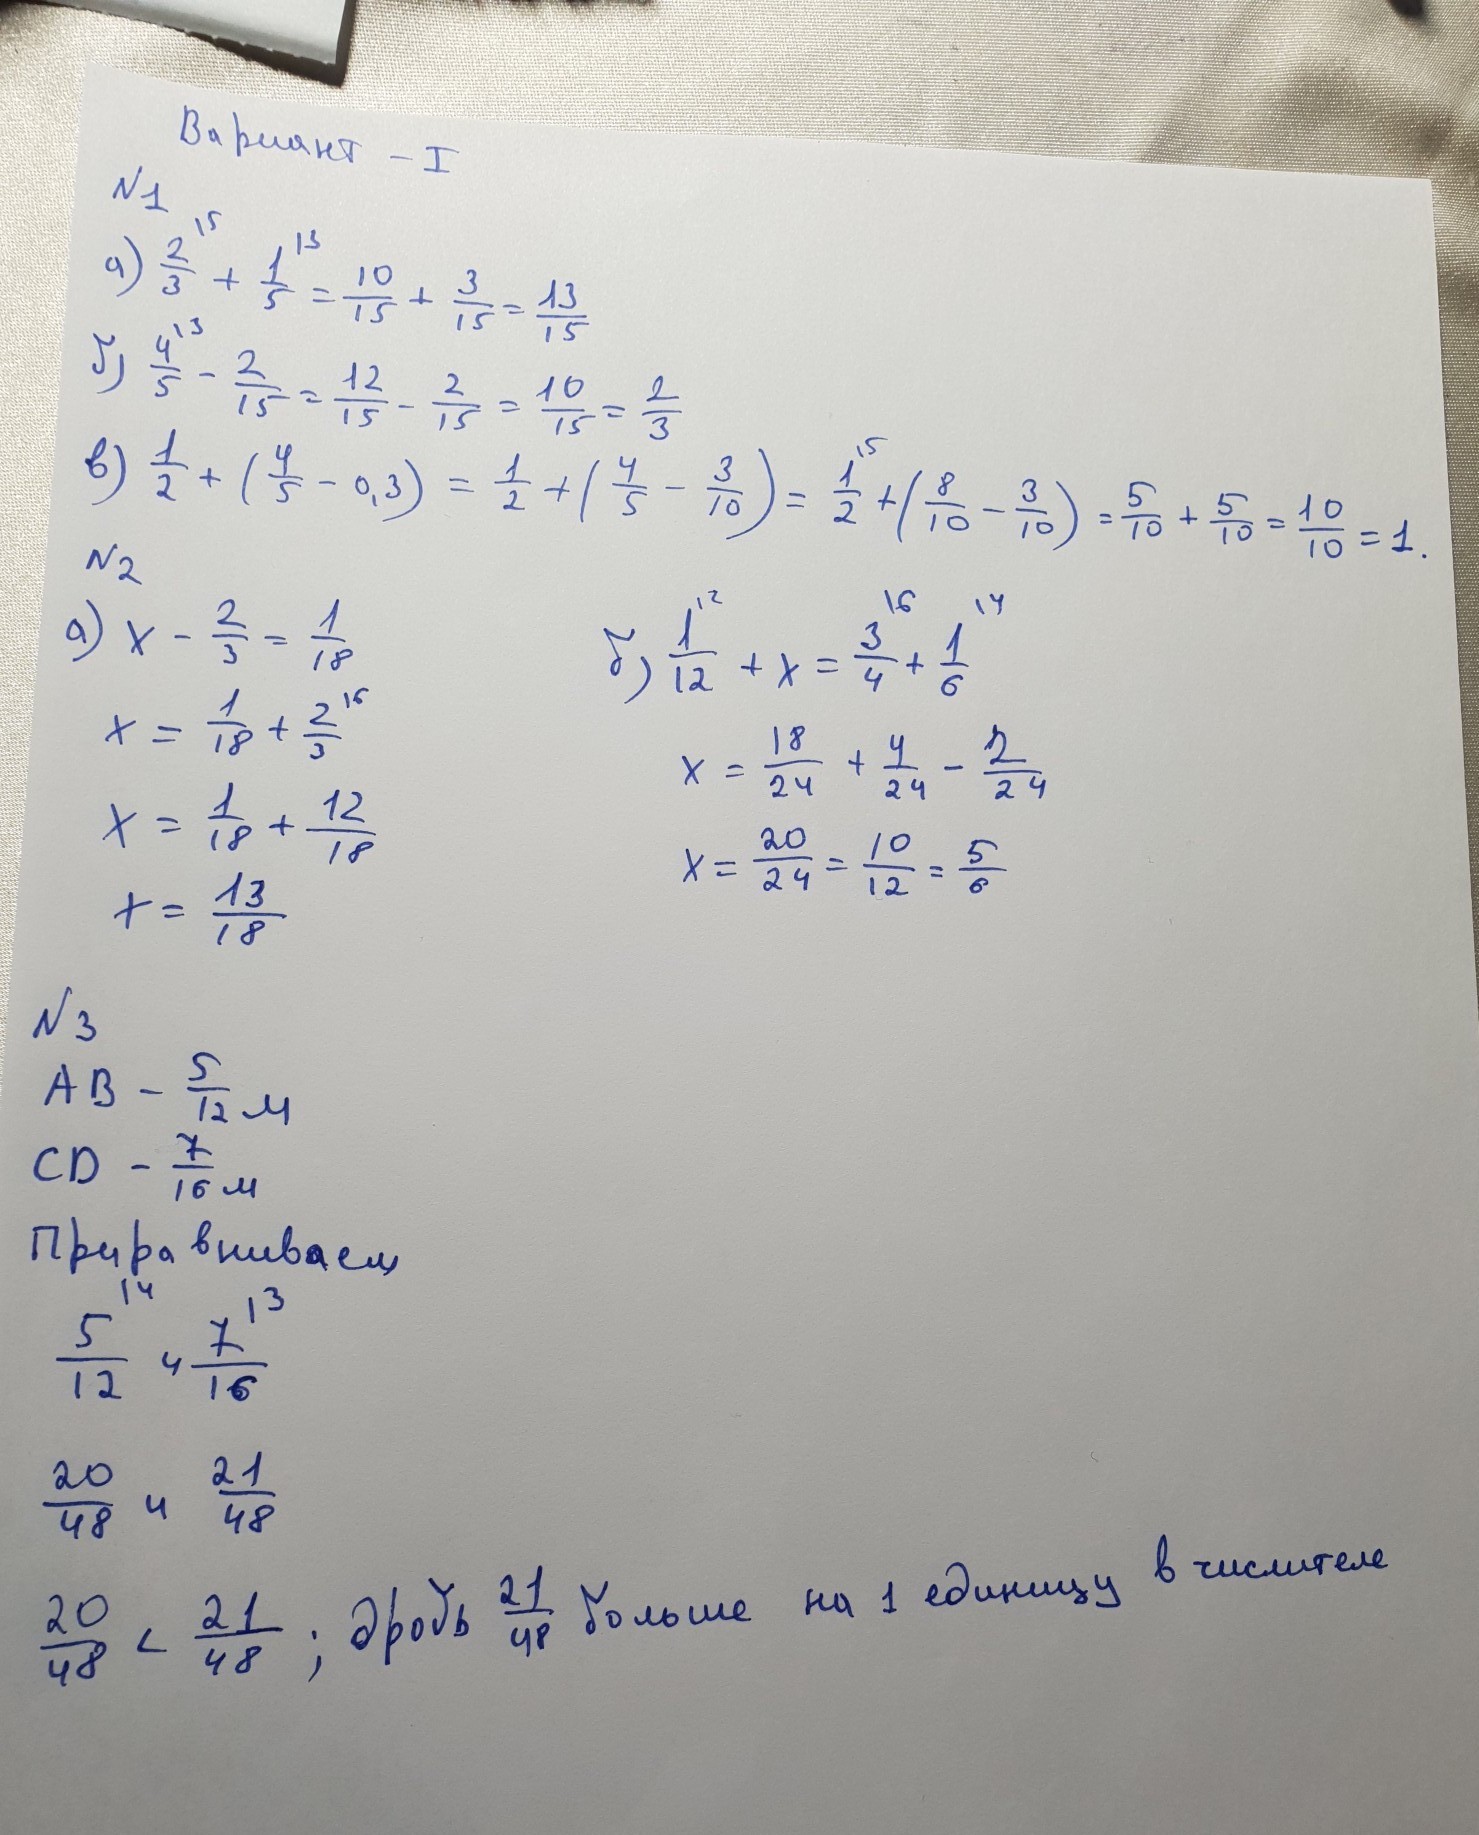 Вариант - I
N1
а) 2/3 \5 + 1/5 \3 = 10/15 + 3/15 = 13/15
б) 4/5 \3 - 2/15 = 12/15 - 2/15 = 10/15 = 2/3
в) 1/2 + (4/5 - 0,3) = 1/2 + (4/5 - 3/10) = 1/2 \5 + (8/10 - 3/10) = 5/10 + 5/10 = 10/10 = 1.
N2
а) x - 2/3 = 1/18
x = 1/18 + 2/3 \6
x = 1/18 + 12/18
x = 13/18
б) 1/12 \2 + x = 3/4 \6 + 1/6 \4
x = 18/24 + 4/24 - 2/24
x = 20/24 = 10/12 = 5/6
N3
AB - 5/12 м
CD - 7/16 м
Прировниваем
5/12 \4 и 7/16 \3
20/48 и 21/48
20/48 < 21/48 ; дробь 21/48 больше на 1 единицу в числителе